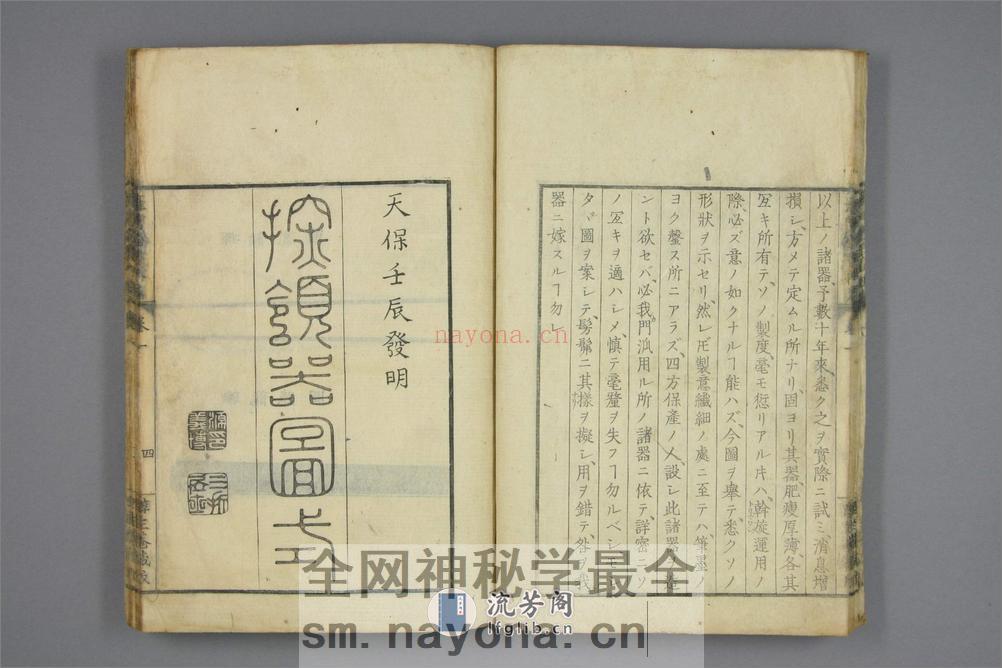 以上ノ諸器予數十年來悉ク之ヲ實際ニ試ミ、消息增
損シ、方メテ定ムル所ナリ、固ヨリ其器、肥瘦厚薄、各其
冝キ所有テ、ソノ製度、毫モ愆リアル𪜈ハ、斡旋運用ノ
際、必ズ意ノ如クナルヿ能ハズ、今圖ヲ擧テ悉クソノ
形狀ヲ示セリ、然レ𪜈製意纖細ノ處ニ至テハ、筆墨ノ
ヨク罄ス所ニアラズ、四方保產ノ人、設シ此諸器ヲ造
ント欲セバ、必我門𣲖用ル所ノ諸器ニ依テ、詳密ニソ
ノ冝キヲ適ハシメ、愼テ毫釐ヲ失フヿ勿ルベシ、
タヾ圖ヲ案シテ、髣髴ニ其樣ヲ擬シ、用ヲ錯テ、咎ヲ我
器ニ嫁スルヿ勿レ
天保壬辰發明
探頷器圖式
卷一
四
全网神秘学最全
流芳阁
lfglib.cn
sm.nayona.cn
nayona.cn